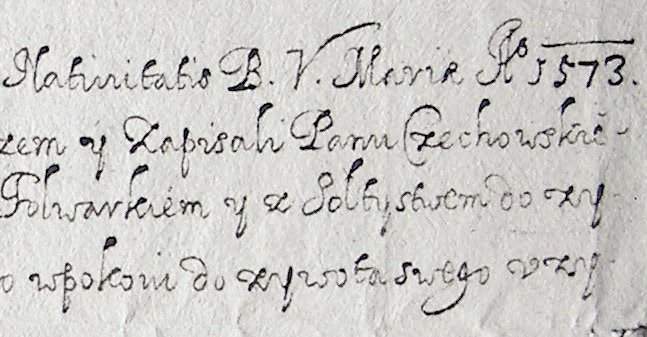 Natiuitatis B. V. Mariæ Aº 1573.
zem ÿ Zapisali Panu Czechowskiĕ-
Folwarkiém y z Soltystwem do zy-
o wpokoiu do zywota swego vzy-